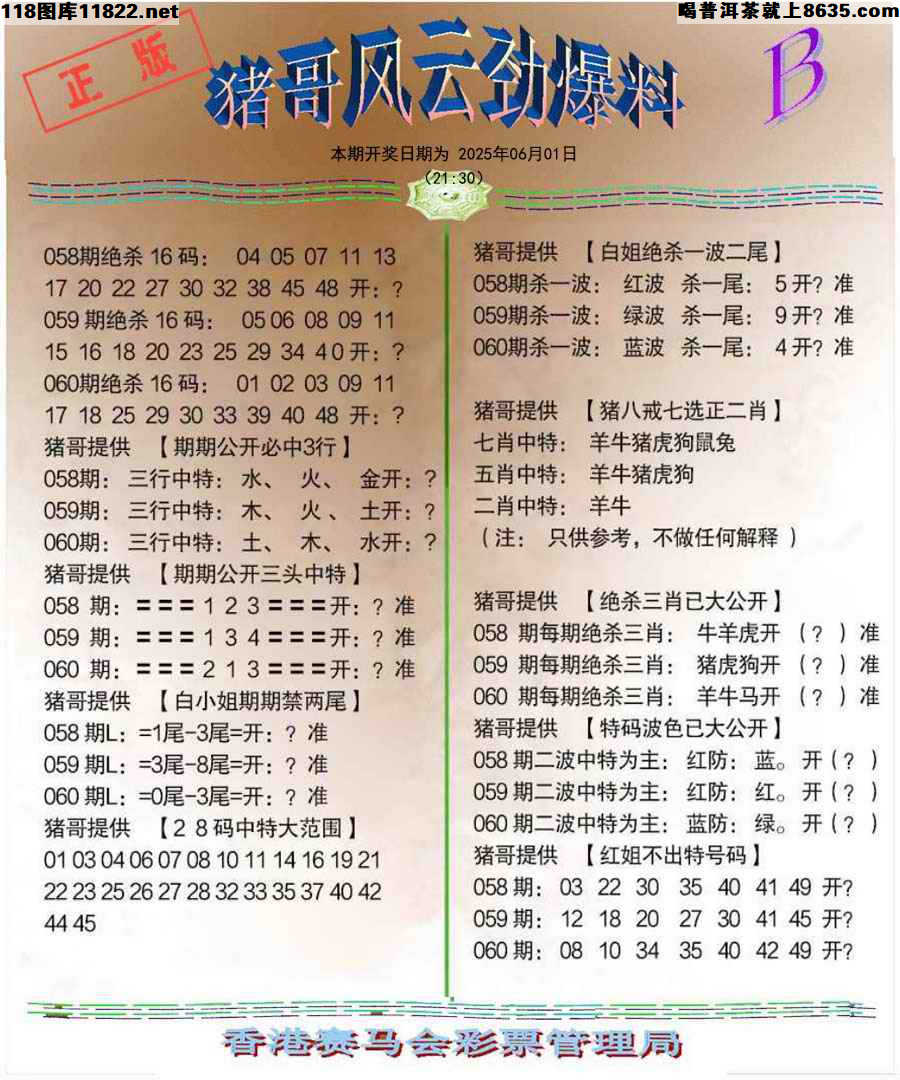 118图库11822.net
喝普洱茶就上8635.com
正版
猪哥风云劲爆料
B
本期开奖日期为 2025年06月01日
(21:30)
058期绝杀 16 码： 04 05 07 11 13
17 20 22 27 30 32 38 45 48 开：?
059 期绝杀 16 码： 05 06 08 09 11
15 16 18 20 23 25 29 34 40 开：?
060期绝杀 16 码： 01 02 03 09 11
17 18 25 29 30 33 39 40 48 开：?
猪哥提供 【期期公开必中3行】
058期： 三行中特： 水、 火、 金开：?
059期： 三行中特： 木、 火、 土开：?
060期： 三行中特： 土、 木、 水开：?
猪哥提供 【期期公开三头中特】
058 期：===123===开：? 准
059 期：===134===开：? 准
060 期：===213===开：? 准
猪哥提供 【白小姐期期禁两尾】
058 期L：=1尾-3尾=开：? 准
059 期L：=3尾-8尾=开：? 准
060 期L：=0尾-3尾=开：? 准
猪哥提供 【28码中特大范围】
01 03 04 06 07 08 10 11 14 16 19 21
22 23 25 26 27 28 32 33 35 37 40 42
44 45
猪哥提供 【白姐绝杀一波二尾】
058期杀一波： 红波 杀一尾： 5 开? 准
059期杀一波： 绿波 杀一尾： 9 开? 准
060期杀一波： 蓝波 杀一尾： 4 开? 准
猪哥提供 【猪八戒七选正二肖】
七肖中特： 羊牛猪虎狗鼠兔
五肖中特： 羊牛猪虎狗
二肖中特： 羊牛
（注： 只供参考，不做任何解释 ）
猪哥提供 【绝杀三肖已大公开】
058 期每期绝杀三肖： 牛羊虎开 （?）准
059 期每期绝杀三肖： 猪虎狗开 （?）准
060 期每期绝杀三肖： 羊牛马开 （?）准
猪哥提供 【特码波色已大公开】
058 期二波中特为主： 红防： 蓝。开（?）
059 期二波中特为主： 红防： 红。开（?）
060 期二波中特为主： 蓝防： 绿。开（?）
猪哥提供 【红姐不出特号码】
058 期： 03 22 30 35 40 41 49 开?
059 期： 12 18 20 27 30 41 45 开?
060 期： 08 10 34 35 40 42 49 开?
香港赛马会彩票管理局